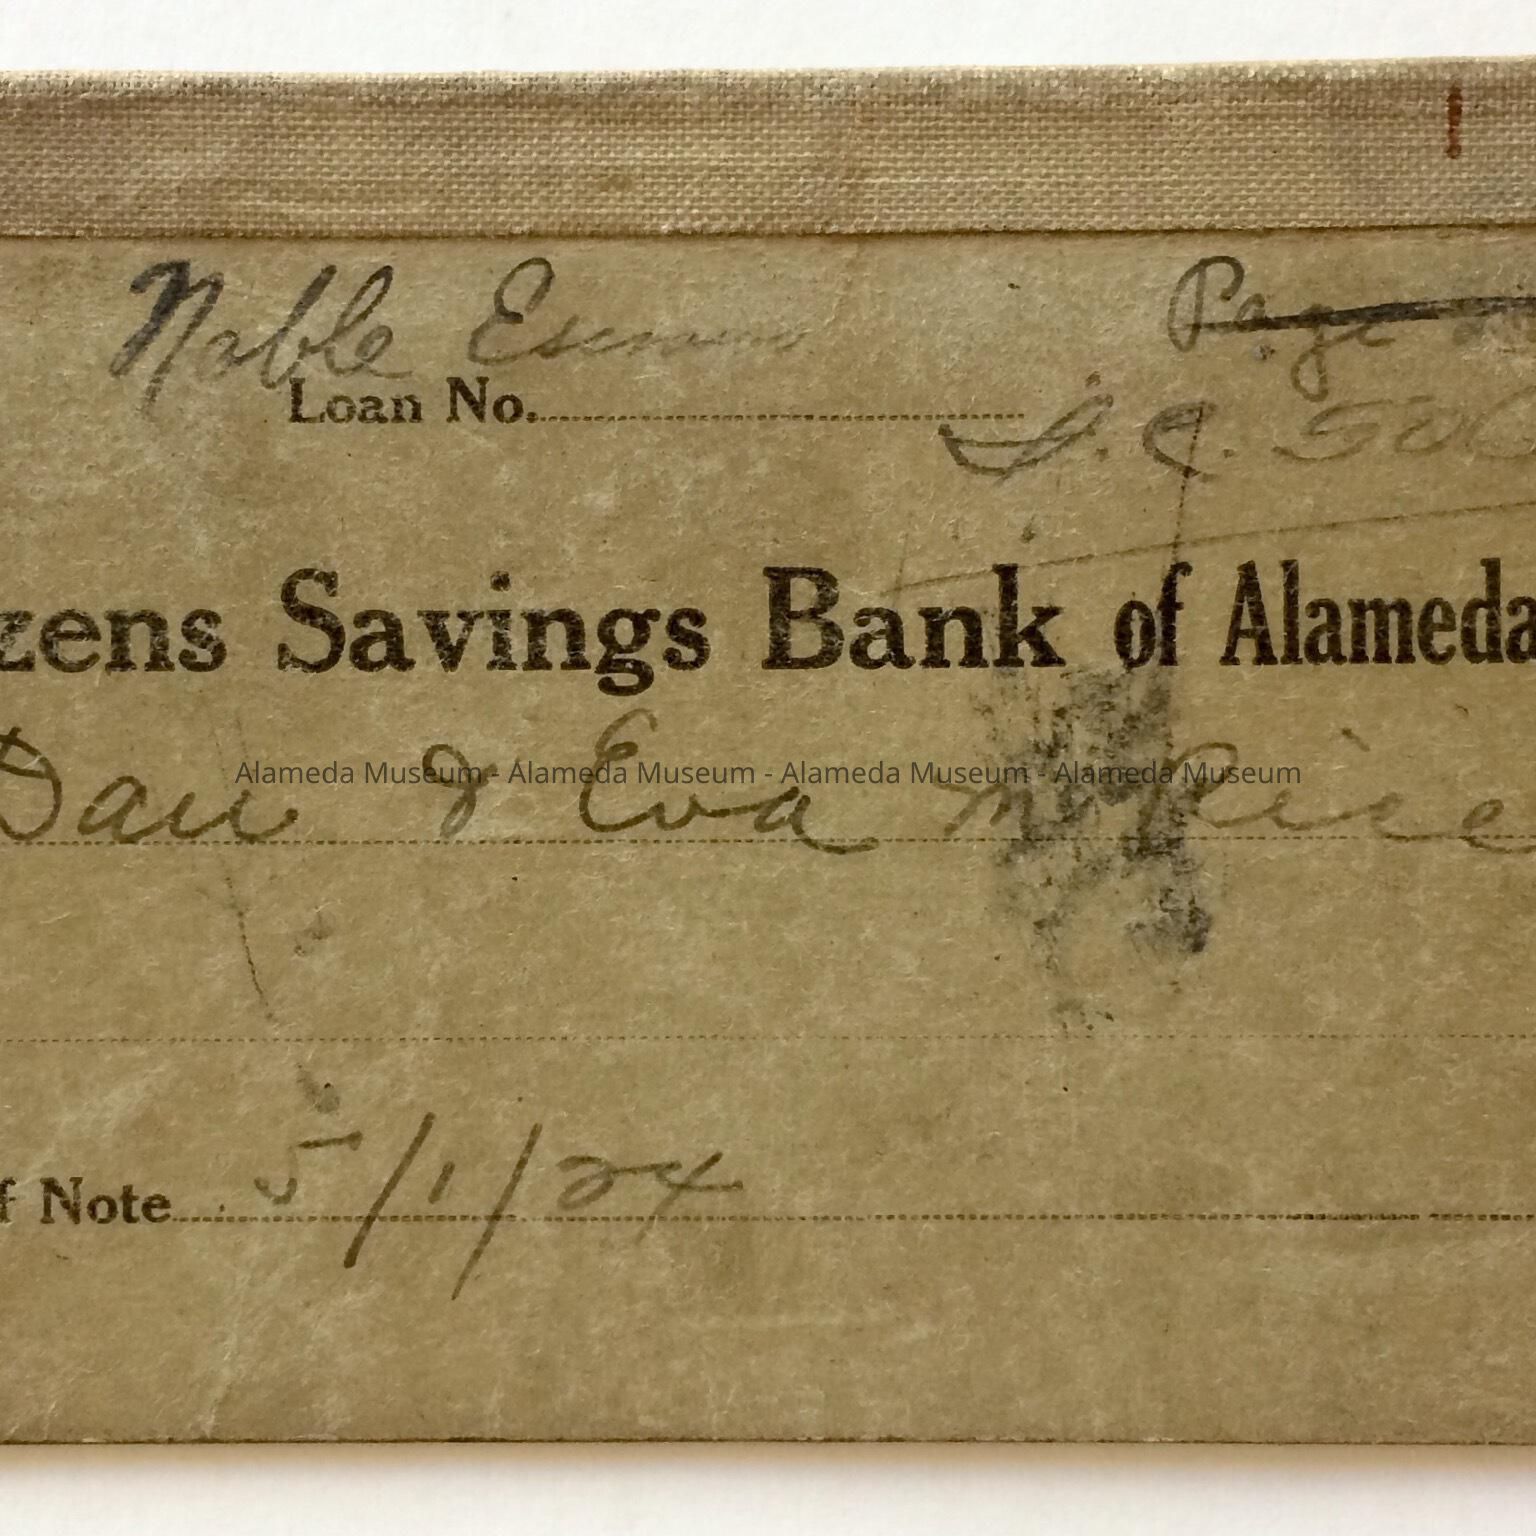 Noble
Page
Loan No.
I.C. 500
zens Savings Bank of Alameda
Dan & Eva
Alameda Museum - Alameda Museum - Alameda Museum - Alameda Museum
f Note 5/1/24